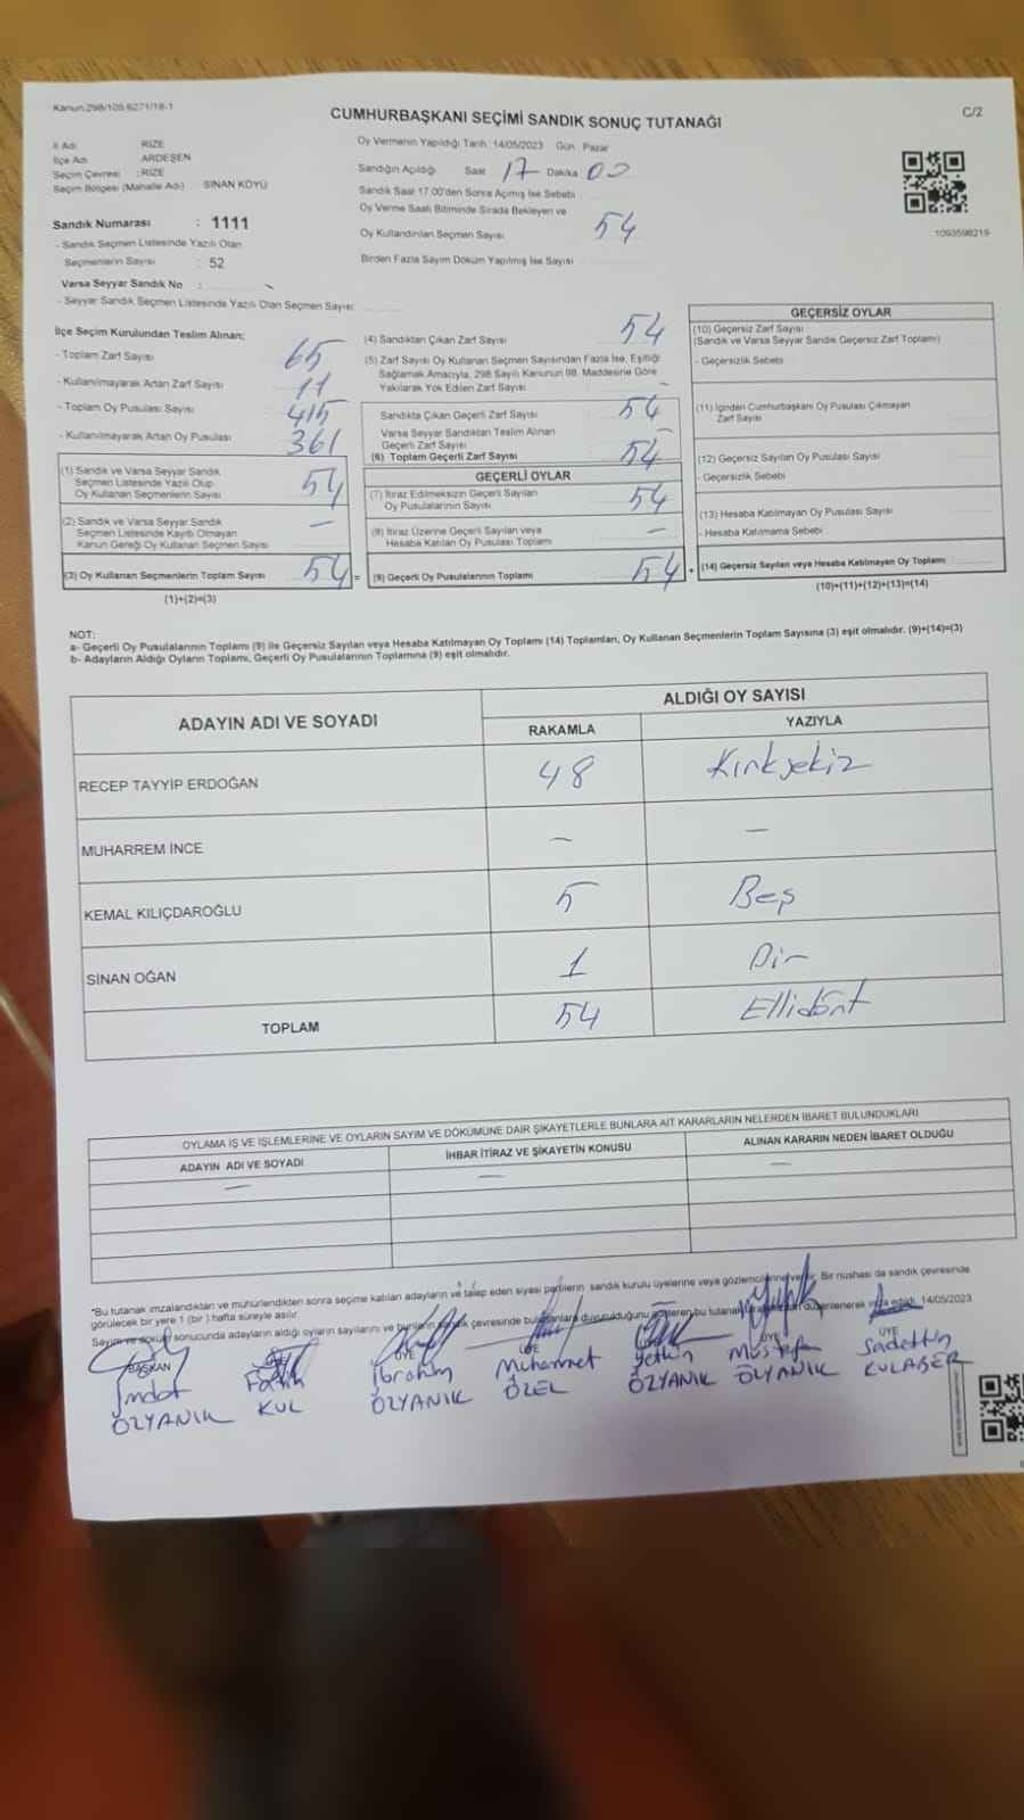 Kanun:298/105.6271/18-1
C/2
CUMHURBAŞKANI SEÇİMİ SANDIK SONUÇ TUTANAĞI
İl Adı RİZE
İlçe Adı ARDEŞEN
Seçim Çevresi :RİZE
Seçim Bölgesi (Mahalle Adı) SİNAN KÖYÜ
Oy Vermenin Yapıldığı Tarih: 14/05/2023 Gün: Pazar
Sandığın Açıldığı Saat 17 Dakika 00
Sandık Saat 17.00'den Sonra Açmış İse Sebebi
Oy Verme Saati Bitiminde Sırada Bekleyen ve
Oy Kullandırılan Seçmen Sayısı 54
Birden Fazla Sayım Döküm Yapılmış İse Sayısı
1093598219
Sandık Numarası : 1111
- Sandık Seçmen Listesinde Yazılı Olan
Seçmenlerin Sayısı : 52
Varsa Seyyar Sandık No :
- Seyyar Sandık Seçmen Listesinde Yazılı Olan Seçmen Sayısı
İlçe Seçim Kurulundan Teslim Alınan:
- Toplam Zarf Sayısı 65
- Kullanılmayarak Artan Zarf Sayısı 11
- Toplam Oy Pusulası Sayısı 415
- Kullanılmayarak Artan Oy Pusulası 361
(1) Sandık ve Varsa Seyyar Sandık
Seçmen Listesinde Yazılı Olup
Oy Kullanan Seçmenlerin Sayısı 54
(2) Sandık ve Varsa Seyyar Sandık
Seçmen Listesinde Kayıtlı Olmayan
Kanun Gereği Oy Kullanan Seçmen Sayısı —
(3) Oy Kullanan Seçmenlerin Toplam Sayısı 54 =
(1)+(2)=(3)
(4) Sandıktan Çıkan Zarf Sayısı 54
(5) Zarf Sayısı Oy Kullanan Seçmen Sayısından Fazla İse, Eşitliği
Sağlamak Amacıyla, 298 Sayılı Kanunun 98. Maddesine Göre
Yakılarak Yok Edilen Zarf Sayısı —
Sandıkta Çıkan Geçerli Zarf Sayısı 54
Varsa Seyyar Sandıktan Teslim Alınan
Geçerli Zarf Sayısı —
(6) Toplam Geçerli Zarf Sayısı 54
GEÇERLİ OYLAR
(7) İtiraz Edilmeksizin Geçerli Sayılan
Oy Pusulalarının Sayısı 54
(8) İtiraz Üzerine Geçerli Sayılan veya
Hesaba Katılan Oy Pusulası Toplamı —
(9) Geçerli Oy Pusulalarının Toplamı 54 +
GEÇERSİZ OYLAR
(10) Geçersiz Zarf Sayısı
(Sandık ve Varsa Seyyar Sandık Geçersiz Zarf Toplamı)
- Geçersizlik Sebebi
(11) İçinden Cumhurbaşkanı Oy Pusulası Çıkmayan
Zarf Sayısı
(12) Geçersiz Sayılan Oy Pusulası Sayısı
- Geçersizlik Sebebi
(13) Hesaba Katılmayan Oy Pusulası Sayısı
- Hesaba Katılmama Sebebi
(14) Geçersiz Sayılan veya Hesaba Katılmayan Oy Toplamı
(10)+(11)+(12)+(13)=(14)
NOT:
a- Geçerli Oy Pusulalarının Toplamı (9) ile Geçersiz Sayılan veya Hesaba Katılmayan Oy Toplamı (14) Toplamları, Oy Kullanan Seçmenlerin Toplam Sayısına (3) eşit olmalıdır. (9)+(14)=(3)
b- Adayların Aldığı Oyların Toplamı, Geçerli Oy Pusulalarının Toplamına (9) eşit olmalıdır.
ADAYIN ADI VE SOYADI ALDIĞI OY SAYISI
RAKAMLA YAZIYLA
RECEP TAYYİP ERDOĞAN 48 Kırksekiz
MUHARREM İNCE — —
KEMAL KILIÇDAROĞLU 5 Beş
SİNAN OĞAN 1 Bir
TOPLAM 54 Ellidört
OYLAMA İŞ VE İŞLEMLERİNE VE OYLARIN SAYIM VE DÖKÜMÜNE DAİR ŞİKAYETLERLE BUNLARA AİT KARARLARIN NELERDEN İBARET BULUNDUKLARI
ADAYIN ADI VE SOYADI İHBAR İTİRAZ VE ŞİKAYETİN KONUSU ALINAN KARARIN NEDEN İBARET OLDUĞU
— — —
"Bu tutanak imzalandıktan ve mühürlendikten sonra seçime katılan adayların ve talep eden siyasi partilerin sandık kurulu üyelerine veya Bir nüshası da sandık çevresinde
görülecek bir yere 1 (bir) hafta süreyle asılır.
sonucunda adayların aldığı oyların sayılarını ve çevresinde duyurulduğunu bu düzenlenerek 14/05/2023
BAŞKAN ÜYE ÜYE ÜYE ÜYE
İmdat Fatih İbrahim Muhammet Yetkin Mustafa Sadettin
ÖZYANIK KUL ÖZYANIK ÖZEL ÖZYANIK ÖZYANIK